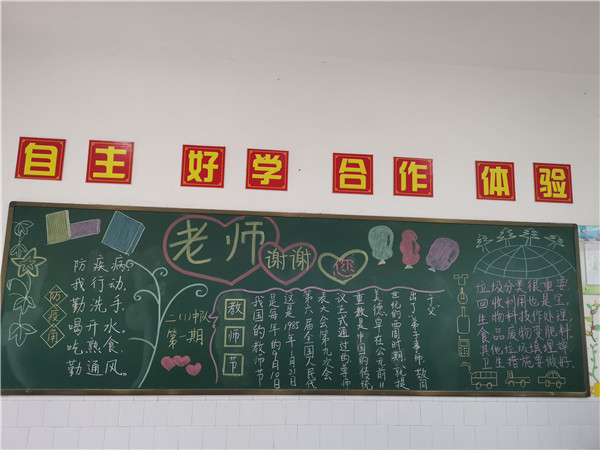 自主 好学 合作 体验
老师
谢谢
您
防疫角
防疾病，
我行动。
勤洗手，
喝开水。
吃熟食，
勤通风。
二(1)中队
第一期
教师节
我国的教师节
是每年的9月10日
这是1985年1月21日
第六届全国人民代
表大会第九次会
议正式通过的。尊师
重教是中国的传统
美德，早在公元前11
世纪的西周时期，就提
出了“弟子事师，敬同
于父”
垃圾分类很重要
回收利用也是宝。
生物科技作处理，
食品废物变肥料
其他垃圾填埋
卫生措施要做好。